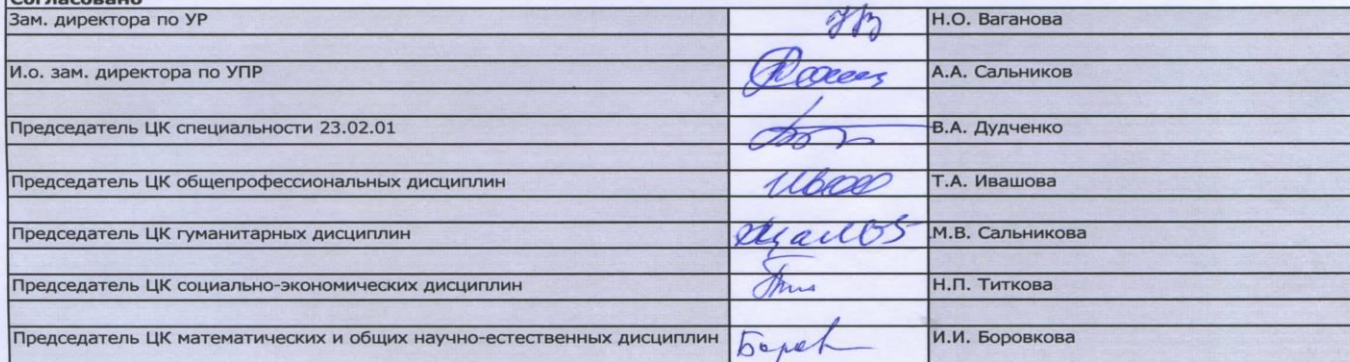 Согласовано
Зам. директора по УР Н.О. Ваганова
И.о. зам. директора по УПР А.А. Сальников
Председатель ЦК специальности 23.02.01 В.А. Дудченко
Председатель ЦК общепрофессиональных дисциплин Т.А. Ивашова
Председатель ЦК гуманитарных дисциплин М.В. Сальникова
Председатель ЦК социально-экономических дисциплин Н.П. Титкова
Председатель ЦК математических и общих научно-естественных дисциплин И.И. Боровкова